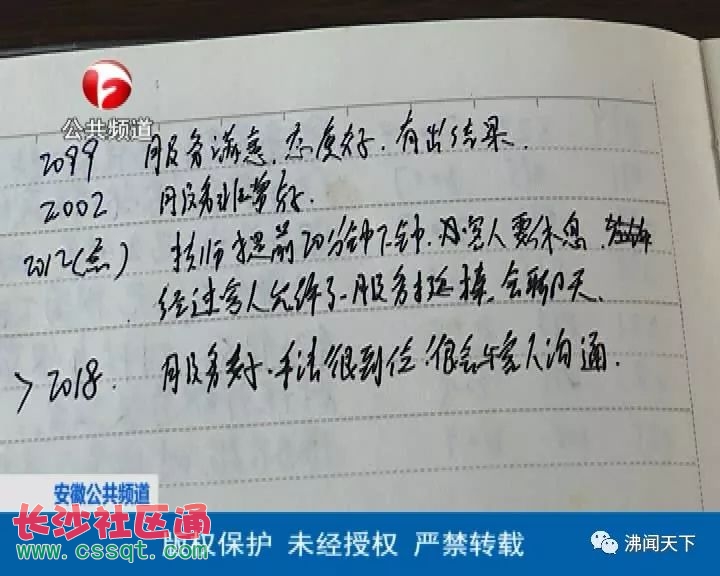 公共频道
2099 服务满意.态度好.有出结果.
2002 服务非常好.
2012(点) 技师提前20分钟下钟.因客人要休息.
经过客人允许了.服务挺棒.会聊天.
>2018. 服务好.手法很到位.很会与客人沟通.
安徽公共频道
长沙社区通
www.cssqt.com
版权保护 未经授权 严禁转载
沸闻天下